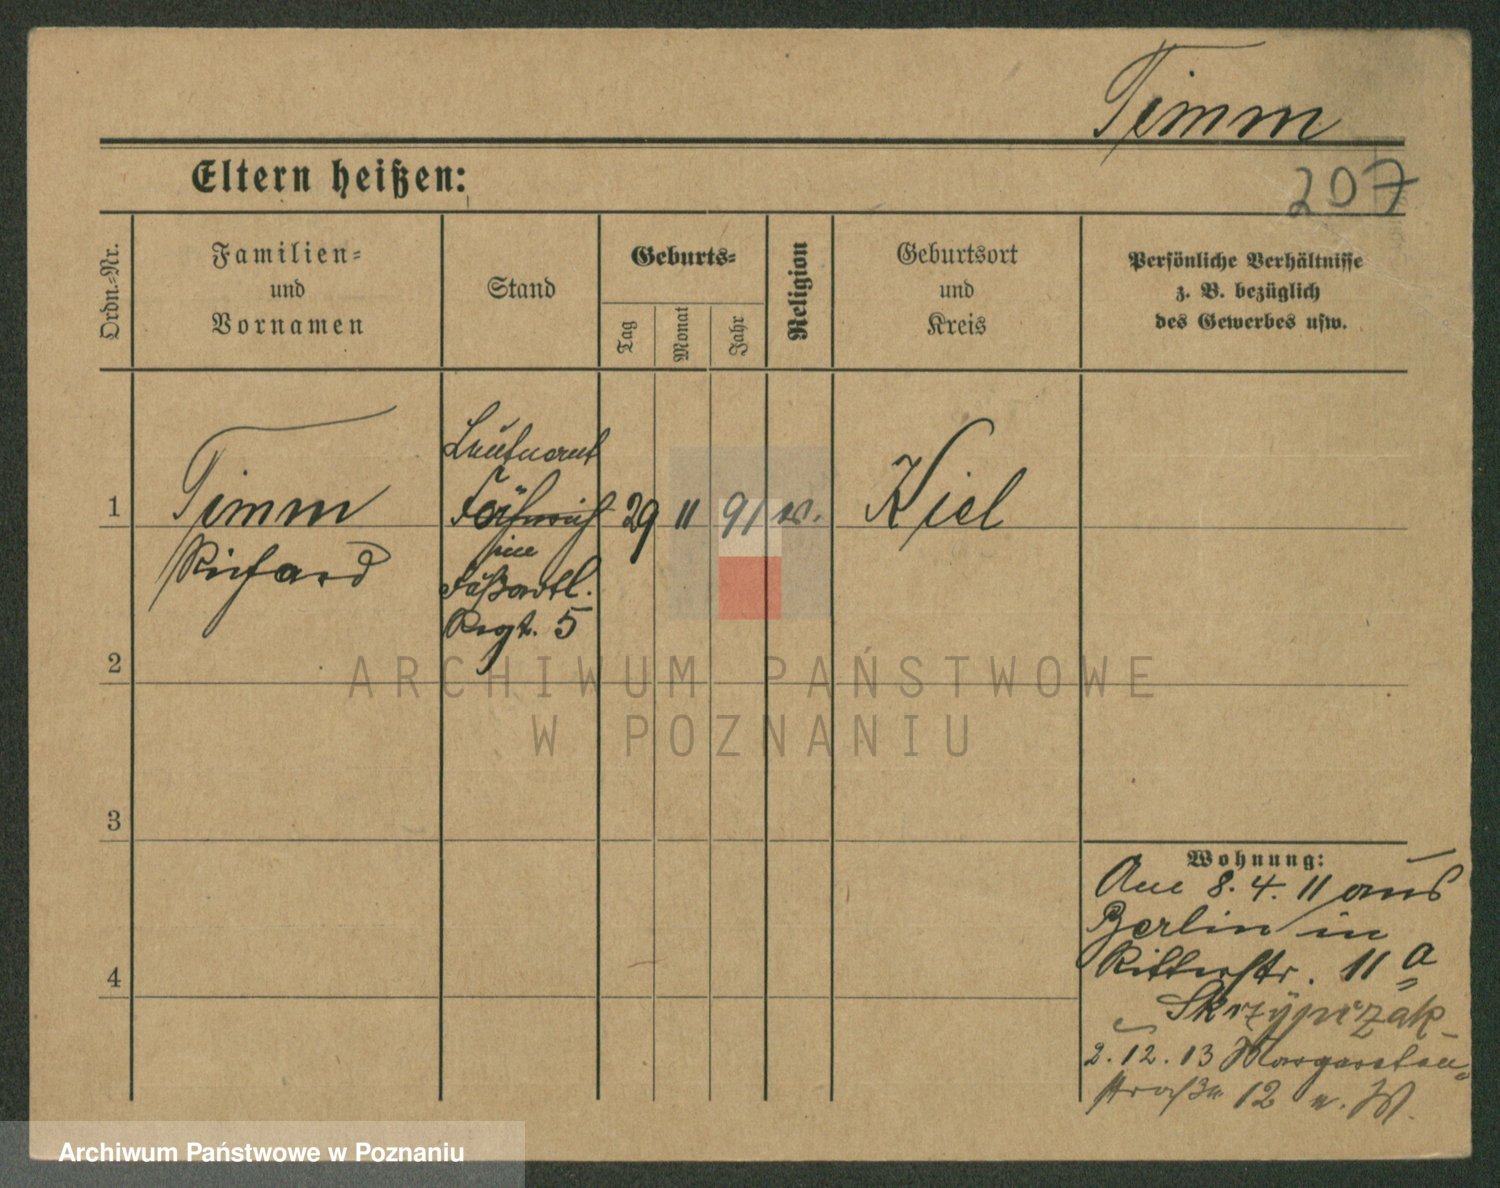 Timm
207
Eltern heißen:
Ordn.-Nr.
Familien-
und
Vornamen
Stand
Geburts-
Tag
Monat
Jahr
Religion
Geburtsort
und
Kreis
Persönliche Verhältnisse
z. B. bezüglich
des Gewerbes usw.
Leutnant
1 Timm Fähnrich 29 11 91 Kiel
Richard im
Fußartl.
Regt. 5
2
3
4
ARCHIWUM PAŃSTWOWE
W POZNANIU
Wohnung:
8. 4. 11 aus
Berlin in
Ritterstr. 11 a
Skrzypczak
2. 12. 13 Margareten-
straße 12 W.
Archiwum Państwowe w Poznaniu